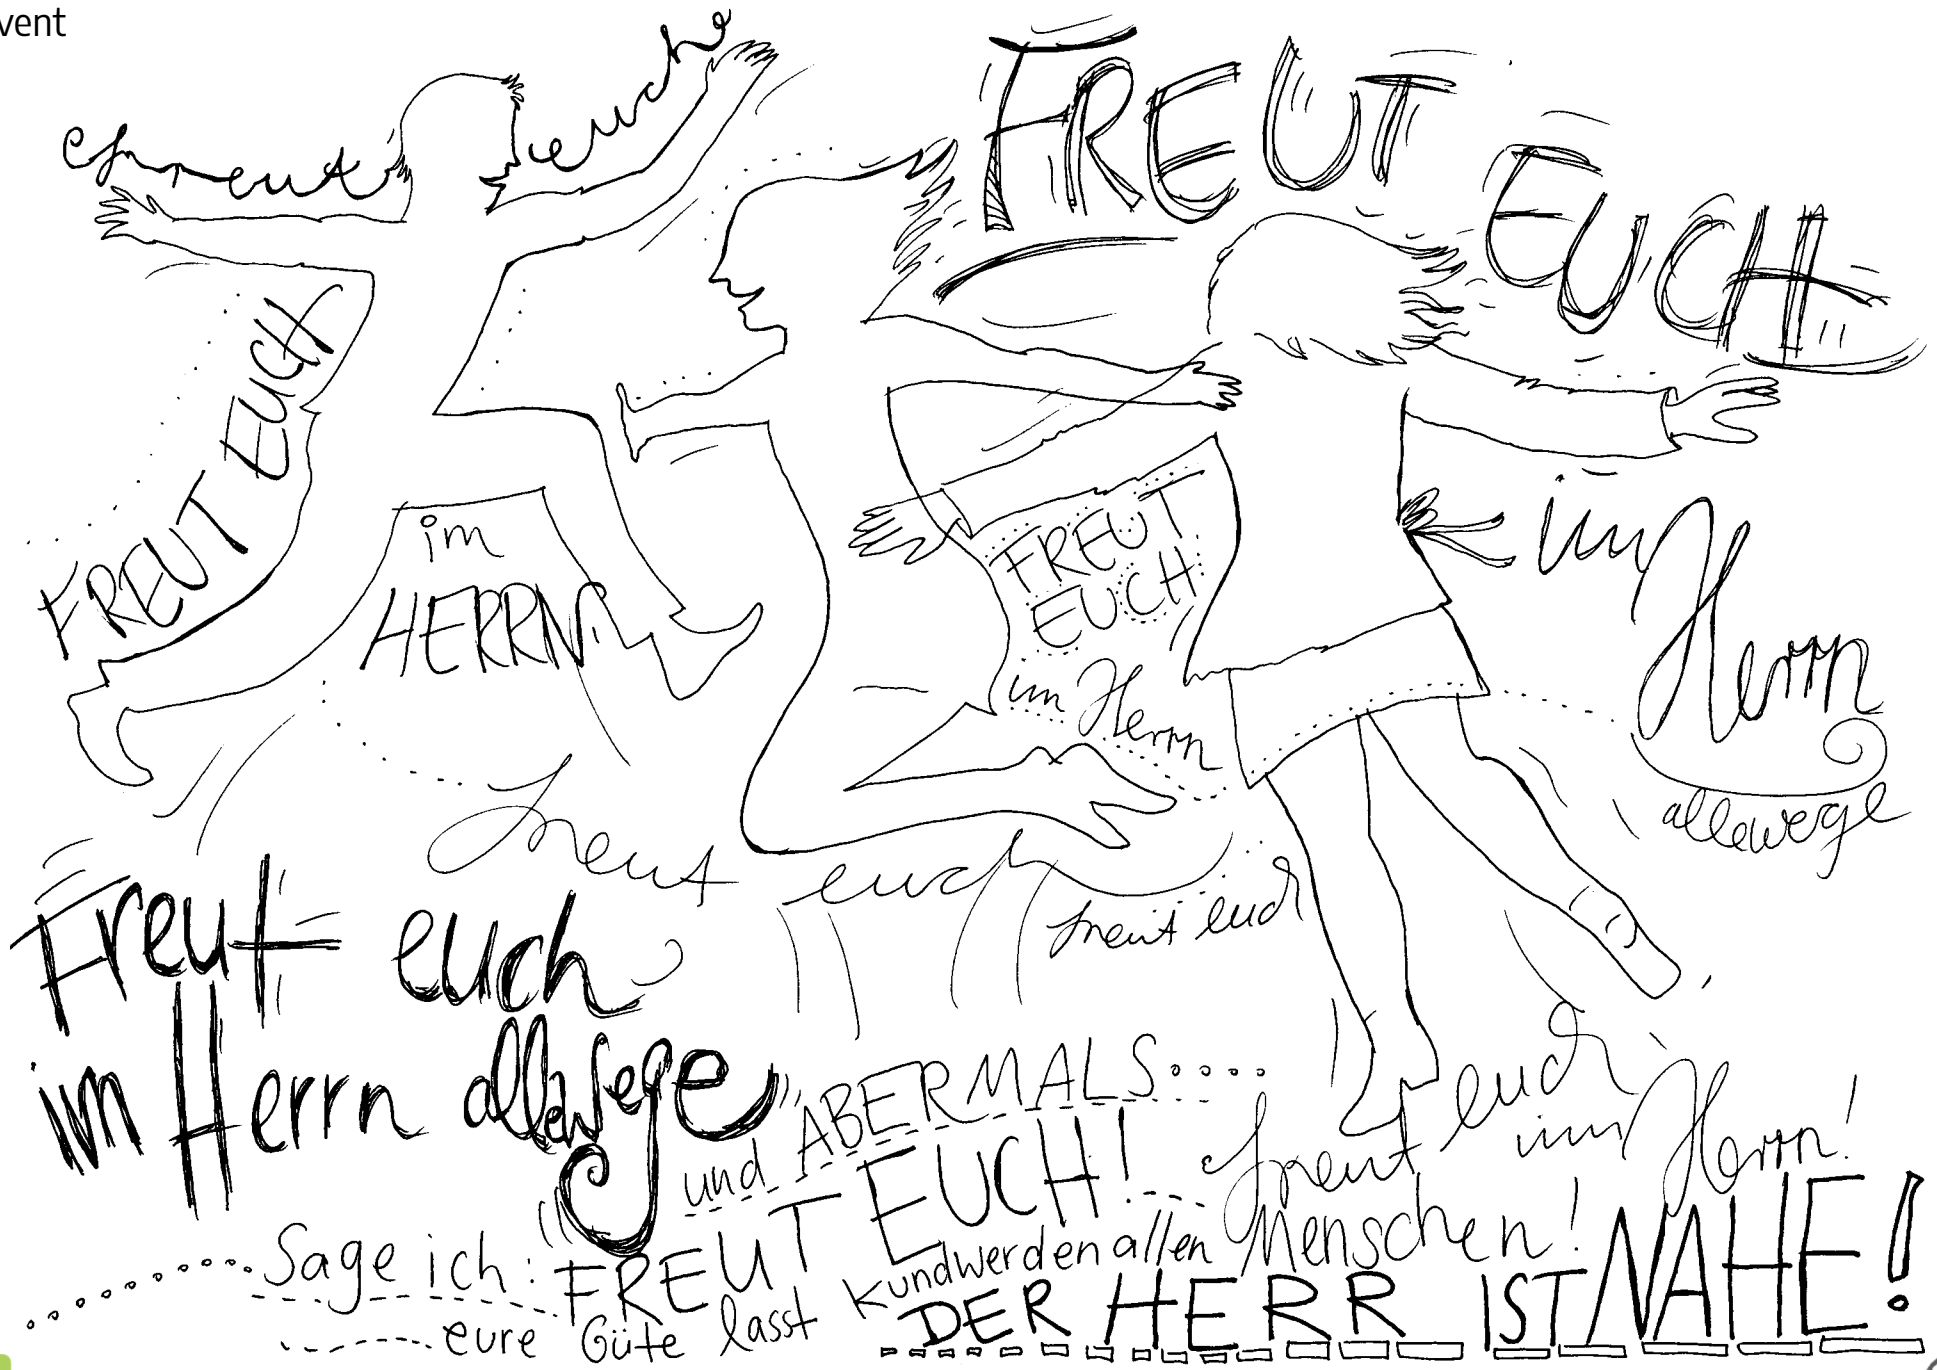 vent
freut euch
FREUT EUCH
FREUT EUCH
im
HERRN
FREUT
EUCH
im Herrn
im
Herrn
allewege
freut euch
freut euch
Freut euch
im Herrn allewege
und ABERMALS....
Sage ich: FREUT EUCH!
freut euch
im Herrn!
eure Güte lasst kundwerden allen Menschen!
DER HERR IST NAHE!